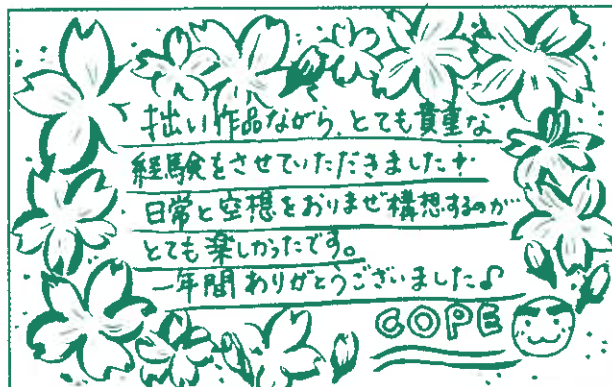 拙い作品ながら、とても貴重な
経験をさせていただきました+
日常と空想をおりまぜ構想するのが
とても楽しかったです。
一年間ありがとうございました♪
COPE